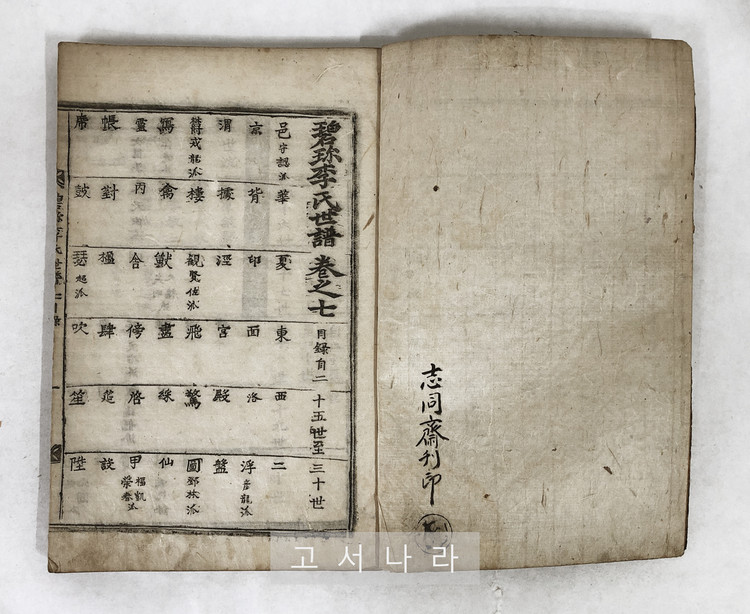 碧珍李氏世譜 卷之七 目錄自二十五世至三十世
邑 守認派 華 夏 東 西 二
京 背 邙 面 洛 浮 彦龍派
渭 據 涇 宮 殿 盤
鬱 戎龍派 樓 觀 賢佐派 飛 驚 圖 鄧林派
寫 禽 獸 畫 綵 仙
靈 丙 舍 傍 啓 甲
帳 對 楹 肆 筵 設
席 鼓 瑟 起派 吹 笙 陞
志同齋刊印
고서나라